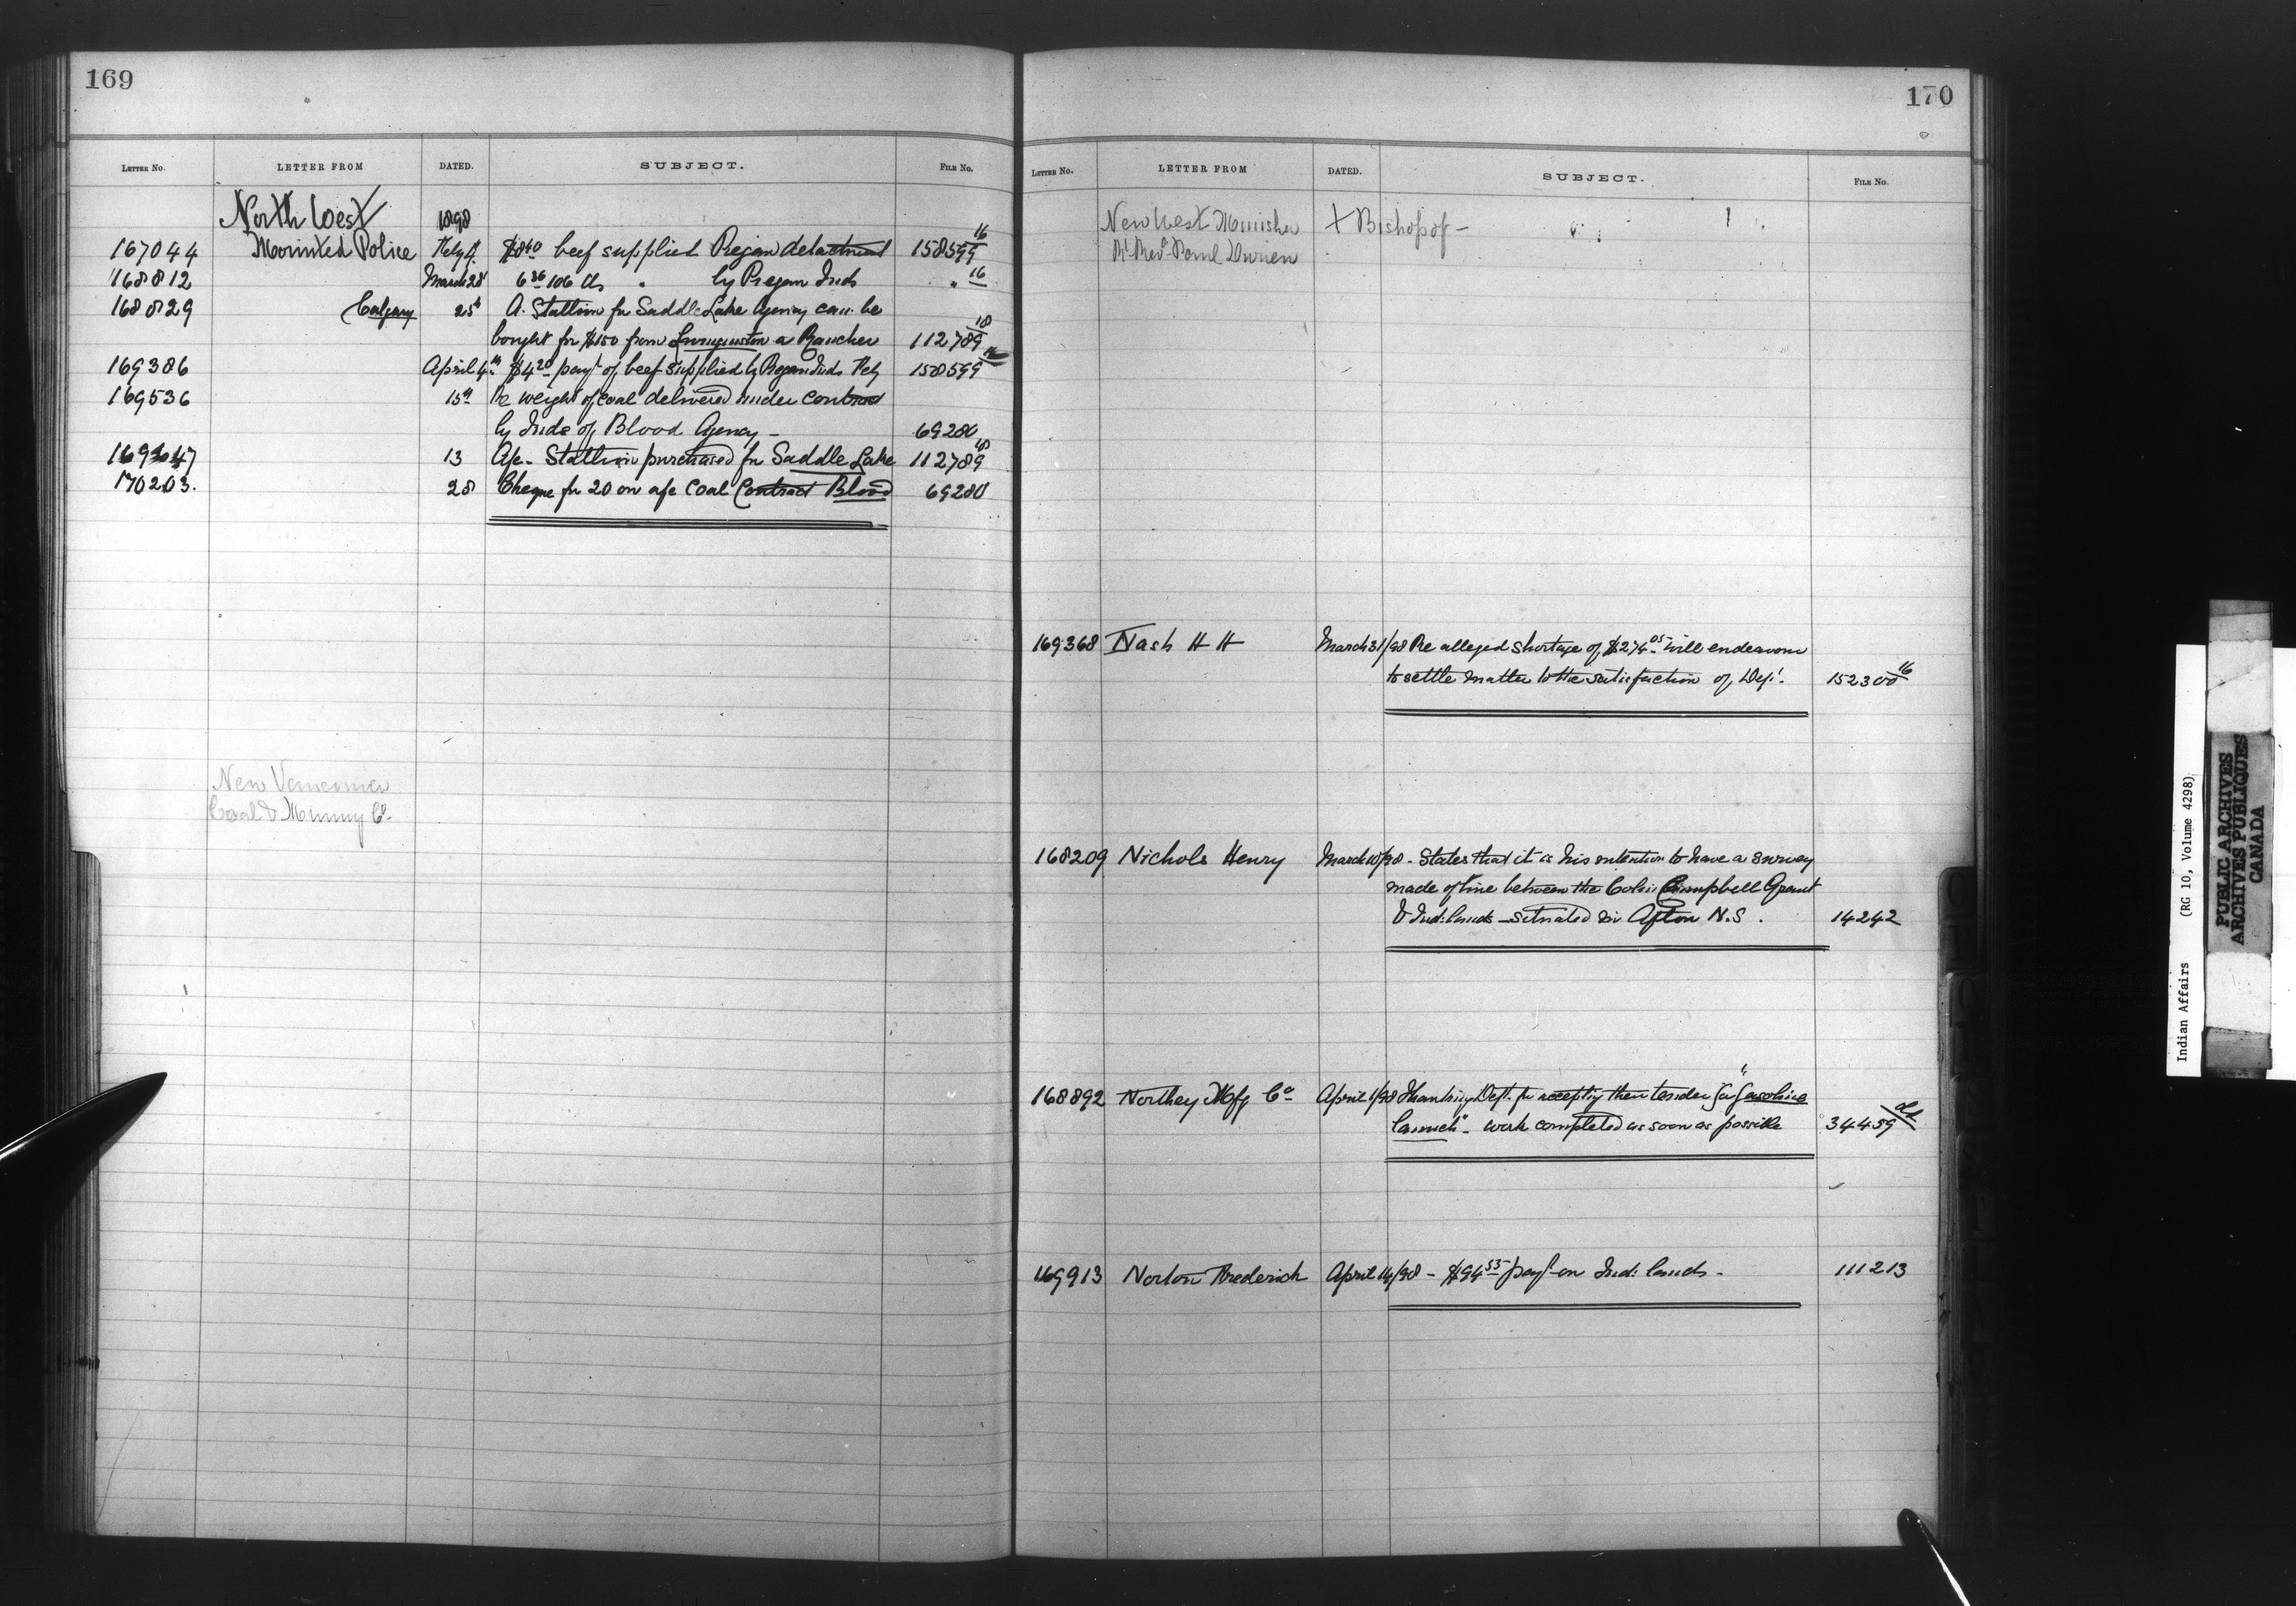 169
LETTER NO. LETTER FROM DATED. SUBJECT. FILE NO.
North West 1898
167044 Mounted Police Feby $8 40 beef supplied Piegan detachment 158599 16
168812 March 28 6 36 106 lbs " by Piegan Inds " 16
168829 Calgary 25th A. Stallion for Saddle Lake Agency can be
bought for $150 from a Rancher 112789 18
169386 April 4th $4 20 payt of beef supplied by Piegan Inds Feby 158599 16
169536 15th Re weight of coal delivered under contract
by Inds of Blood Agency - 69280
13 A/c - Stallion purchased for Saddle Lake 112789 18
170203. 28 Cheque for 20 on a/c Coal Contract Blood 69280
New Vancouver
Coal & Mining Co.
170
LETTER NO. LETTER FROM DATED. SUBJECT. FILE NO.
New West Minister + Bishop of -
Rt Revd Paul Durieu
169368 Nash H H March 31/98 Re alleged shortage of $274 05 - will endeavour
to settle matter to the satisfaction of Dept. 152300 16
168209 Nichols Henry March 10/98 - States that it is his intention to have a survey
made of line between the Colin Campbell Grant
& Ind: lands - situated in Afton N.S. 14242
168892 Northey Mfg Co April 1/98 Thanking Dept. for accepting their tender for "Gasoline
launch" - work completed as soon as possible 34459
169913 Norton Frederick April 14/98 - $94 53 payt on Ind: lands - 111213
Indian Affairs (RG 10, Volume 4298)
PUBLIC ARCHIVES
ARCHIVES PUBLIQUES
CANADA